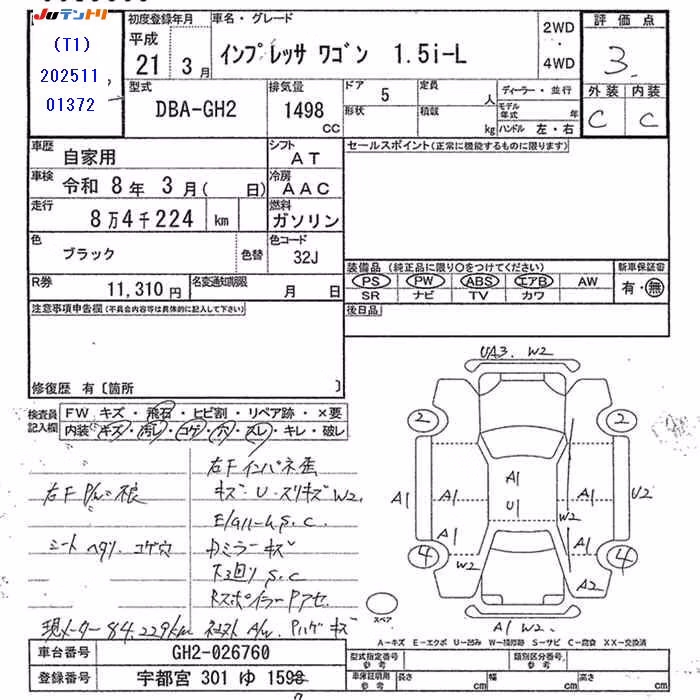 Juテントリ
(T1)
202511
01372
初度登録年月
平成
21 3月
車名・グレード
インプレッサ ワゴン 1.5i-L
2WD
・
4WD
評価点
3
外装 内装
C C
型式
DBA-GH2
排気量
1498
CC
ドア 5
形状
定員 人
積載 kg
ディーラー・並行
モデル年式 年
ハンドル 左・右
車歴 自家用
シフト AT
セールスポイント(正常に機能するものに限ります)
車検 令和 8年 3月( 日)
冷房 AAC
走行 8万4千224 km
燃料 ガソリン
色 ブラック 色替
色コード 32J
装備品 (純正品に限り○をつけてください)
新車保証書
PS PW ABS エアB AW
有・無
SR ナビ TV カワ
R券 11,310円
名変通知期限 月 日
後日品
注意事項申告欄(不具合内容等は具体的に記入して下さい)
修復歴 有〔箇所 〕
検査員記入欄
FW キズ・飛石・ヒビ割・リペア跡・×要
内装 キズ・汚レ・コゲ・穴・スレ・キレ・破レ
右Fインパネ歪
右F P/W不良
キズ・U・スリキズW2
シート ヘタリ、コゲ穴
Dミラーキズ
下回りS.C
現メーター84,229km
UA3. W2
2 2
A1 A1 A1 U1 A1 U2
W2
A1 A1
4 W2 4
A2
スペア
A1 W2
A-キズ E-エクボ U-凹み W-補修跡 S-サビ C-腐食 XX-交換済
車台番号 GH2-026760
型式指定番号 参考
類別区分番号 参考
登録番号 宇都宮 301 ゆ 1598
車庫証明用 参考
長さ cm 幅 cm 高さ cm